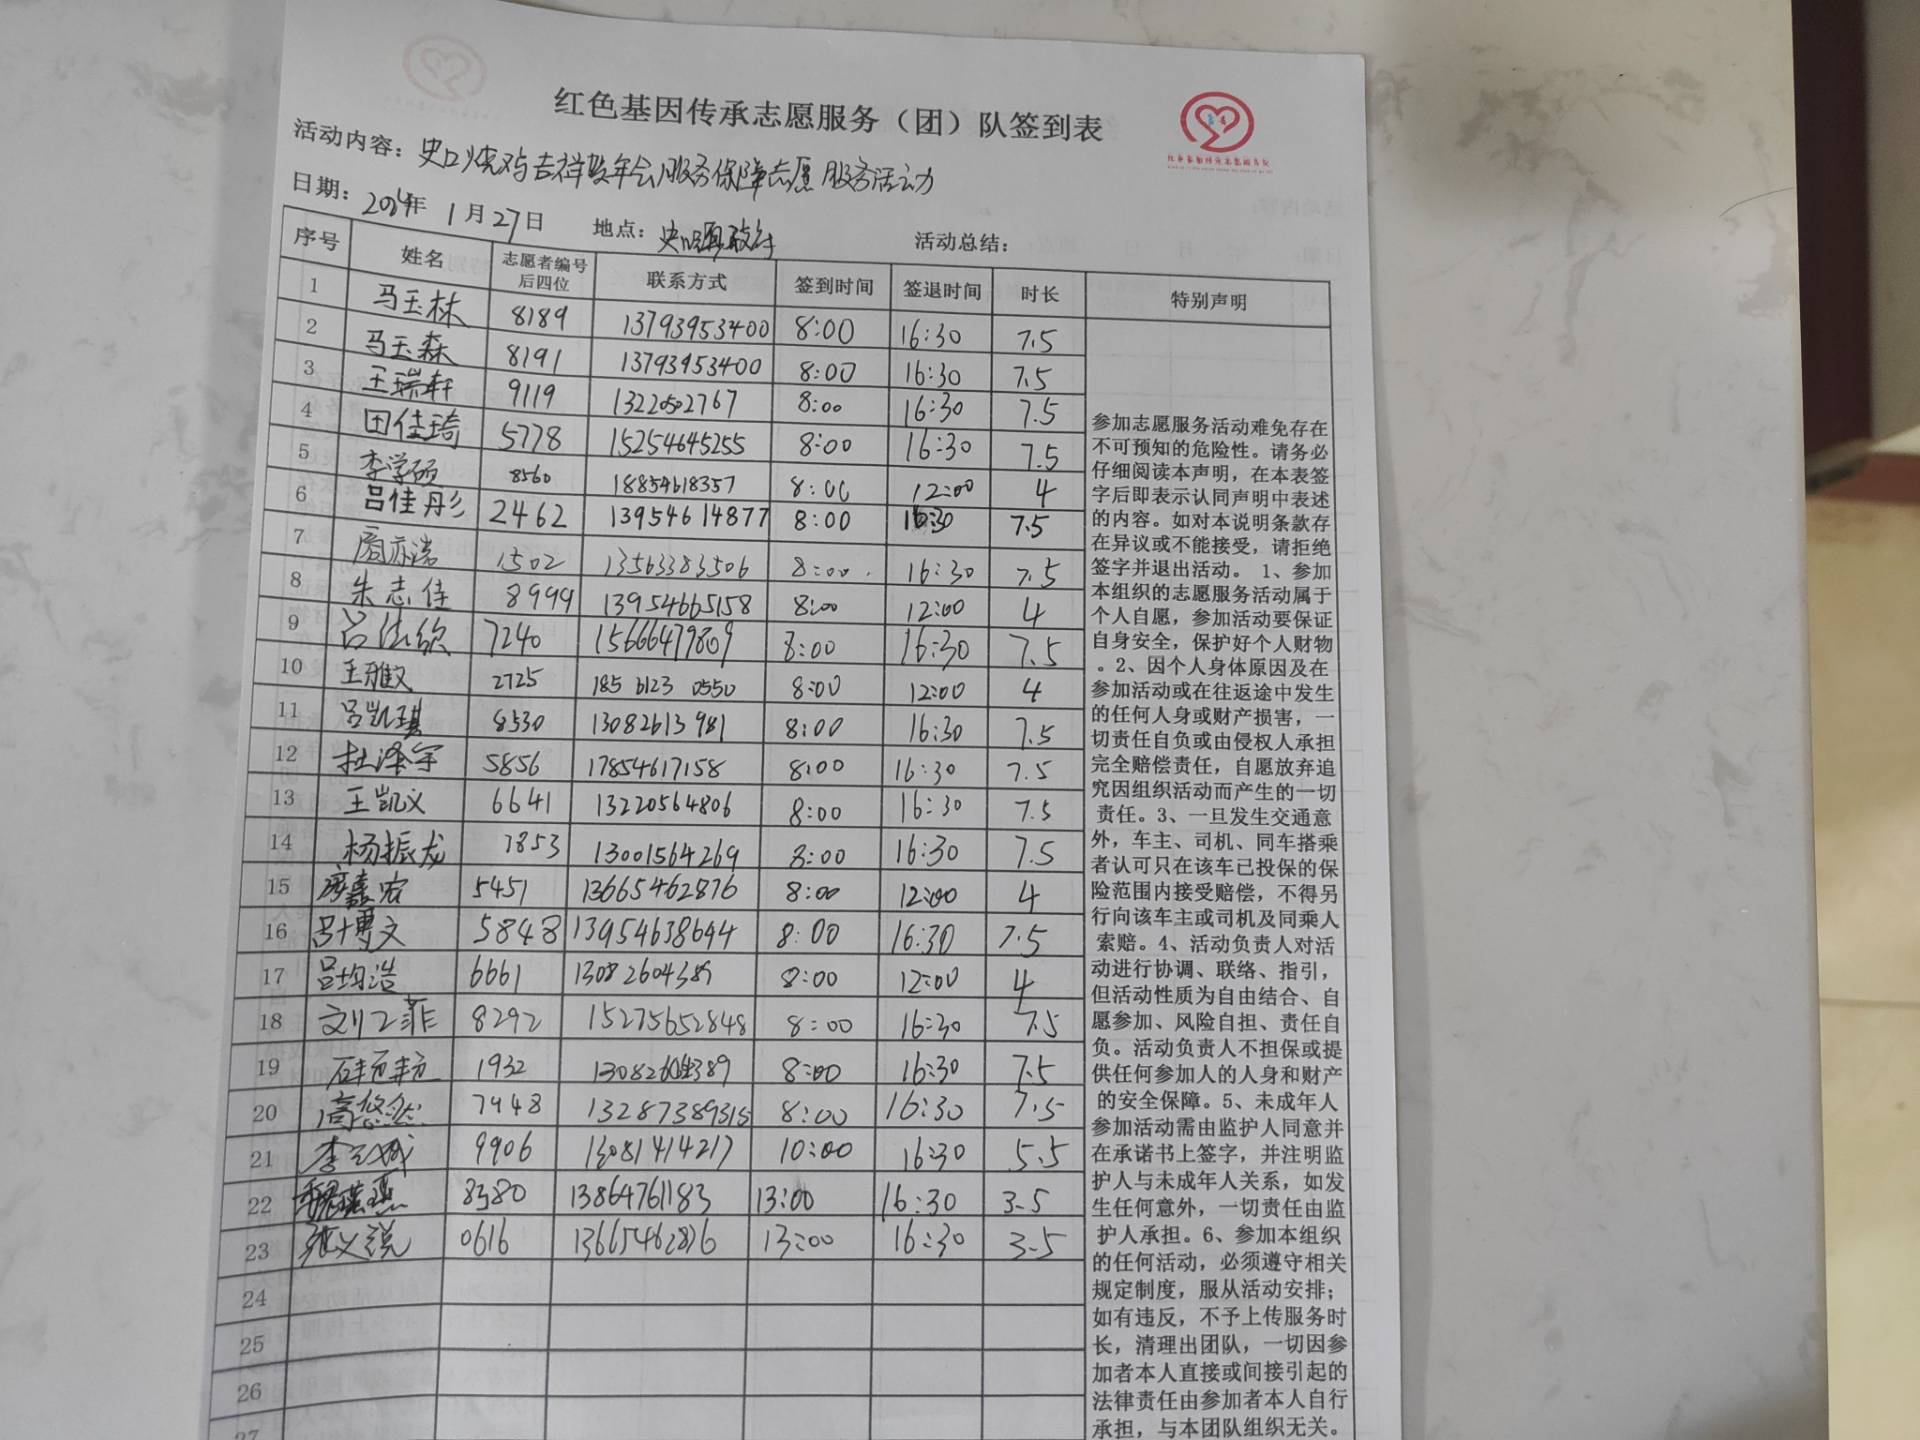 红色基因传承志愿服务（团）队签到表
活动内容：史口烧鸡吉祥鸡年会服务保障志愿服务活动
日期：2024年 1月27日 地点：史口 活动总结：
序号 姓名 志愿者编号后四位 联系方式 签到时间 签退时间 时长 特别声明
1 马玉林 8189 13793953400 8:00 16:30 7.5
2 马玉森 8191 13793953400 8:00 16:30 7.5
3 王瑞轩 9119 1322052767 8:00 16:30 7.5
4 田佳琦 5778 15254645255 8:00 16:30 7.5
5 李学硕 8560 18854618357 8:00 12:00 4
6 吕佳彤 2462 13954614877 8:00 16:30 7.5
7 1502 13563383506 8:00 16:30 7.5
8 朱志佳 8999 13954665158 8:00 12:00 4
9 7240 15666479809 8:00 16:30 7.5
10 王雅文 2725 185 6123 0550 8:00 12:00 4
11 吕凯琪 8530 13082613981 8:00 16:30 7.5
12 杜泽宇 5856 17854617158 8:00 16:30 7.5
13 王凯义 6641 13220564806 8:00 16:30 7.5
14 杨振龙 7853 13001564269 8:00 16:30 7.5
15 5451 13665462876 8:00 12:00 4
16 吕博文 5848 13954638644 8:00 16:30 7.5
17 吕均浩 6661 13082604389 8:00 12:00 4
18 8292 15275652848 8:00 16:30 7.5
19 1932 13082604389 8:00 16:30 7.5
20 高悠然 7448 13287389315 8:00 16:30 7.5
21 9906 13081414217 10:00 16:30 5.5
22 8380 13864761183 13:00 16:30 3.5
23 张义锐 0616 13665462876 13:00 16:30 3.5
24
25
26
27
参加志愿服务活动难免存在
不可预知的危险性。请务必
仔细阅读本声明，在本表签
字后即表示认同声明中表述
的内容。如对本说明条款存
在异议或不能接受，请拒绝
签字并退出活动。 1、参加
本组织的志愿服务活动属于
个人自愿，参加活动要保证
自身安全，保护好个人财物
。2、因个人身体原因及在
参加活动或在往返途中发生
的任何人身或财产损害，一
切责任自负或由侵权人承担
完全赔偿责任，自愿放弃追
究因组织活动而产生的一切
责任。3、一旦发生交通意
外，车主、司机、同车搭乘
者认可只在该车已投保的保
险范围内接受赔偿，不得另
行向该车主或司机及同乘人
索赔。4、活动负责人对活
动进行协调、联络、指引，
但活动性质为自由结合、自
愿参加、风险自担、责任自
负。活动负责人不担保或提
供任何参加人的人身和财产
的安全保障。5、未成年人
参加活动需由监护人同意并
在承诺书上签字，并注明监
护人与未成年人关系，如发
生任何意外，一切责任由监
护人承担。6、参加本组织
的任何活动，必须遵守相关
规定制度，服从活动安排；
如有违反，不予上传服务时
长，清理出团队，一切因参
加者本人直接或间接引起的
法律责任由参加者本人自行
承担，与本团队组织无关。